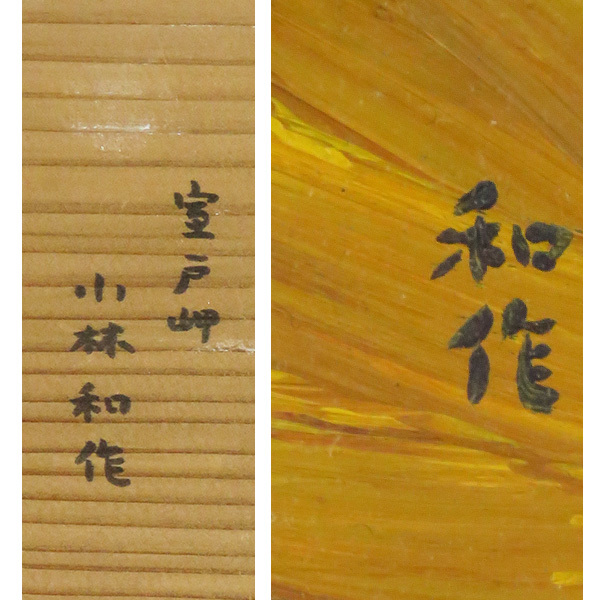 室戸岬
小林和作
和作